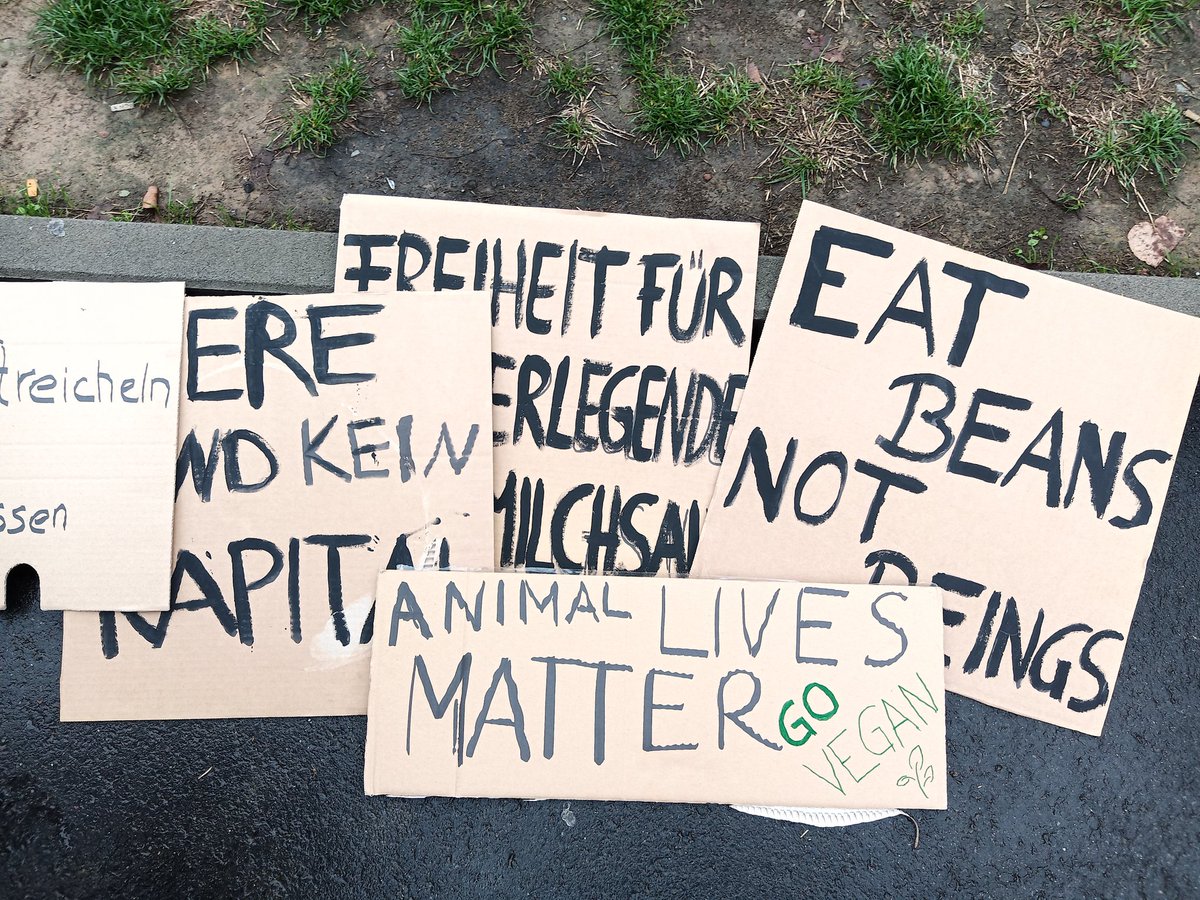 treicheln
ssen
ERE
ND KEIN
KAPITAL
FREIHEIT FÜR
ERLEGENDE
MILCHSAU
EAT
BEANS
NOT
BEINGS
ANIMAL LIVES
MATTER
GO
VEGAN